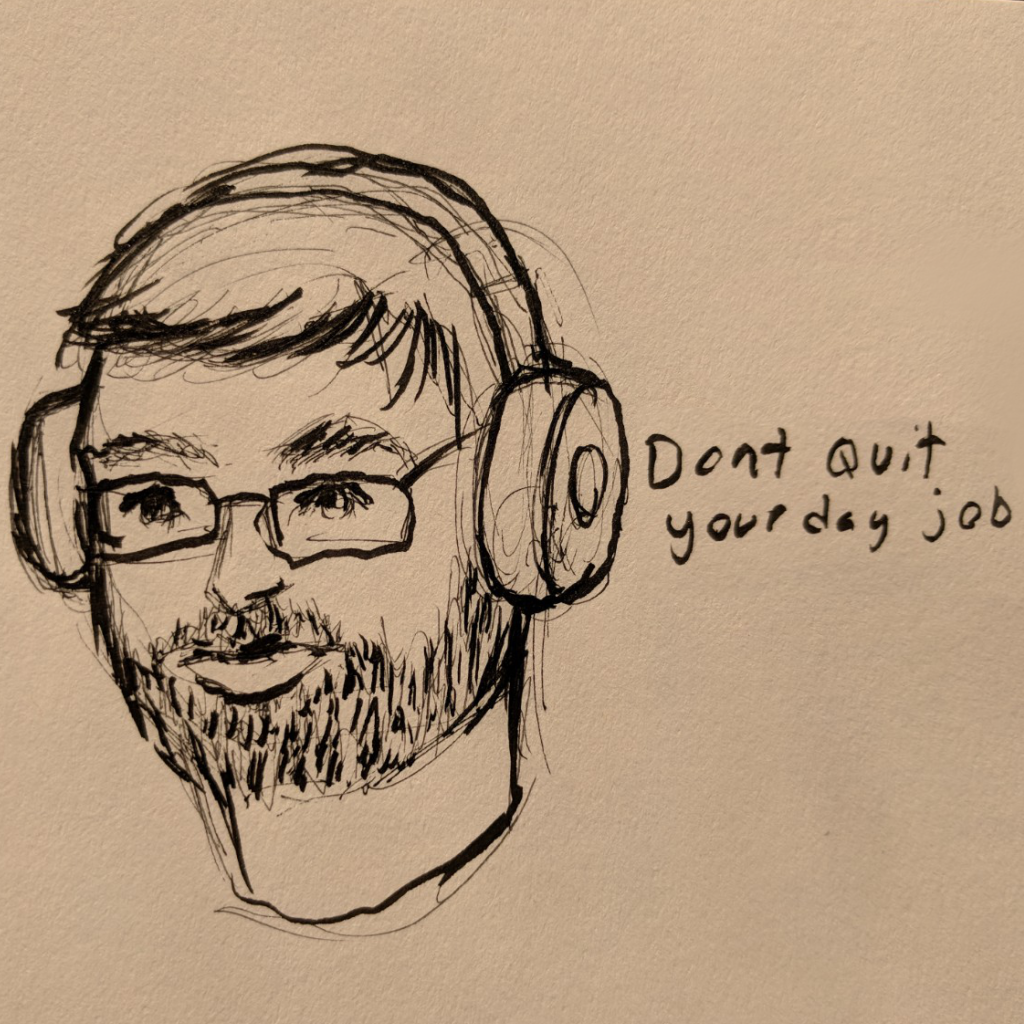 Dont Quit
your day job